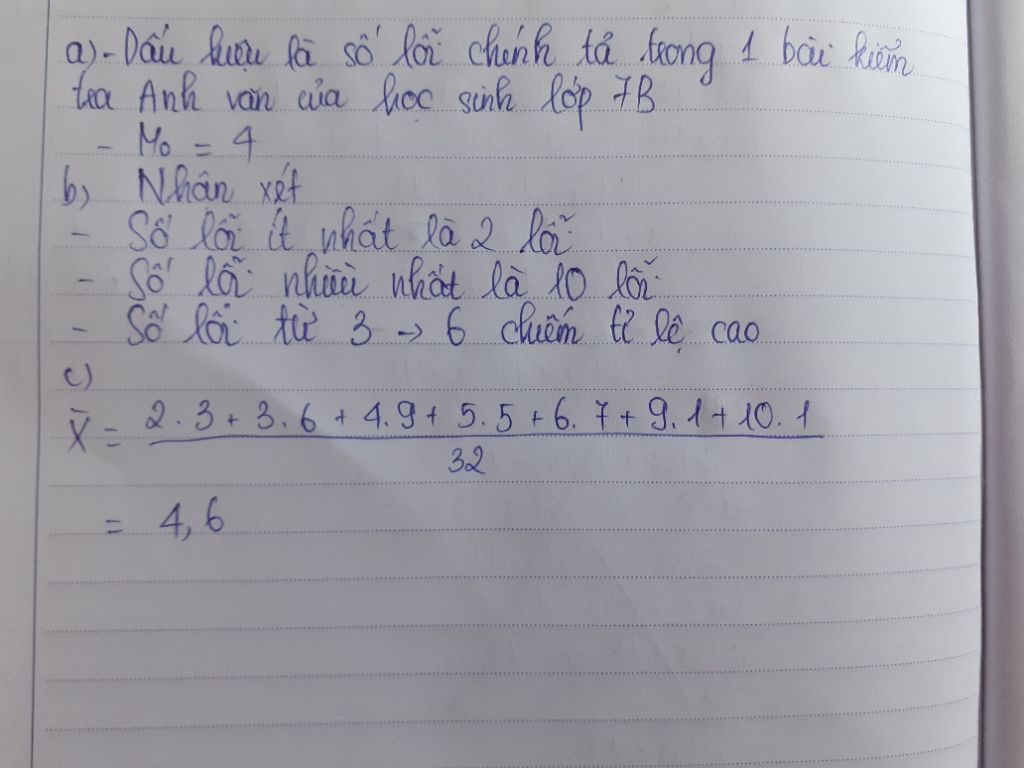 a) - Dấu hiệu là số lỗi chính tả trong 1 bài kiểm
tra Anh văn của học sinh lớp 7B
- M₀ = 4
b) Nhận xét
- Số lỗi ít nhất là 2 lỗi
- Số lỗi nhiều nhất là 10 lỗi
- Số lỗi từ 3 → 6 chiếm tỉ lệ cao
c)
X̄ = 2.3 + 3.6 + 4.9 + 5.5 + 6.7 + 9.1 + 10.1
32
= 4,6